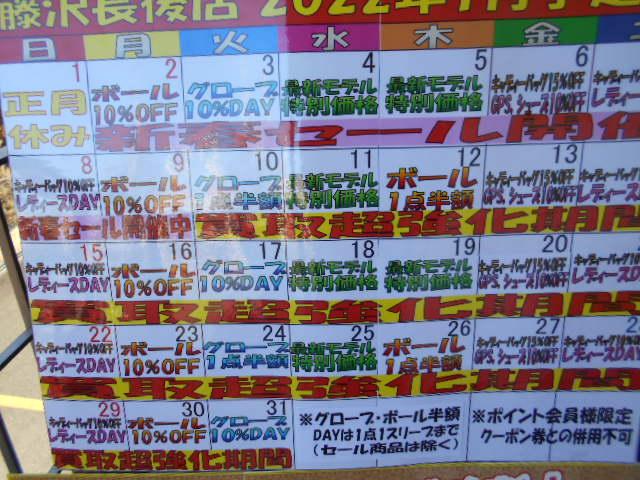 藤沢長後店 2022年1月予定
日 月 火 水 木 金 土
1 2 3 4 5 6
正月 ボール グローブ 最新モデル 最新モデル キャディーバッグ15%OFF キャディーバッグ
休み 10%OFF 10%DAY 特別価格 特別価格 GPS、シューズ10%OFF レディース
新春セール開催
8 9 10 11 12 13
キャディーバッグ10%OFF ボール グローブ 最新モデル ボール キャディーバッグ15%OFF キャディーバッグ
レディースDAY 10%OFF 1点半額 特別価格 1点半額 GPS、シューズ10%OFF レディース
新春セール開催中 買取超強化期間
15 16 17 18 19 20
キャディーバッグ10%OFF ボール グローブ 最新モデル 最新モデル キャディーバッグ15%OFF キャディーバッグ
レディースDAY 10%OFF 10%DAY 特別価格 特別価格 GPS、シューズ10%OFF レディースD
買取超強化期間
22 23 24 25 26 27 2
キャディーバッグ10%OFF ボール グローブ 最新モデル ボール キャディーバッグ15%OFF キャディーバッグ
レディースDAY 10%OFF 1点半額 特別価格 1点半額 GPS、シューズ10%OFF レディースD
買取超強化期間
29 30 31
キャディーバッグ10%OFF ボール グローブ ※グローブ・ボール半額 ※ポイント会員様限定
レディースDAY 10%OFF 10%DAY DAYは1点1スリーブまで クーポン券との併用不可
(セール商品は除く)
買取超強化期間